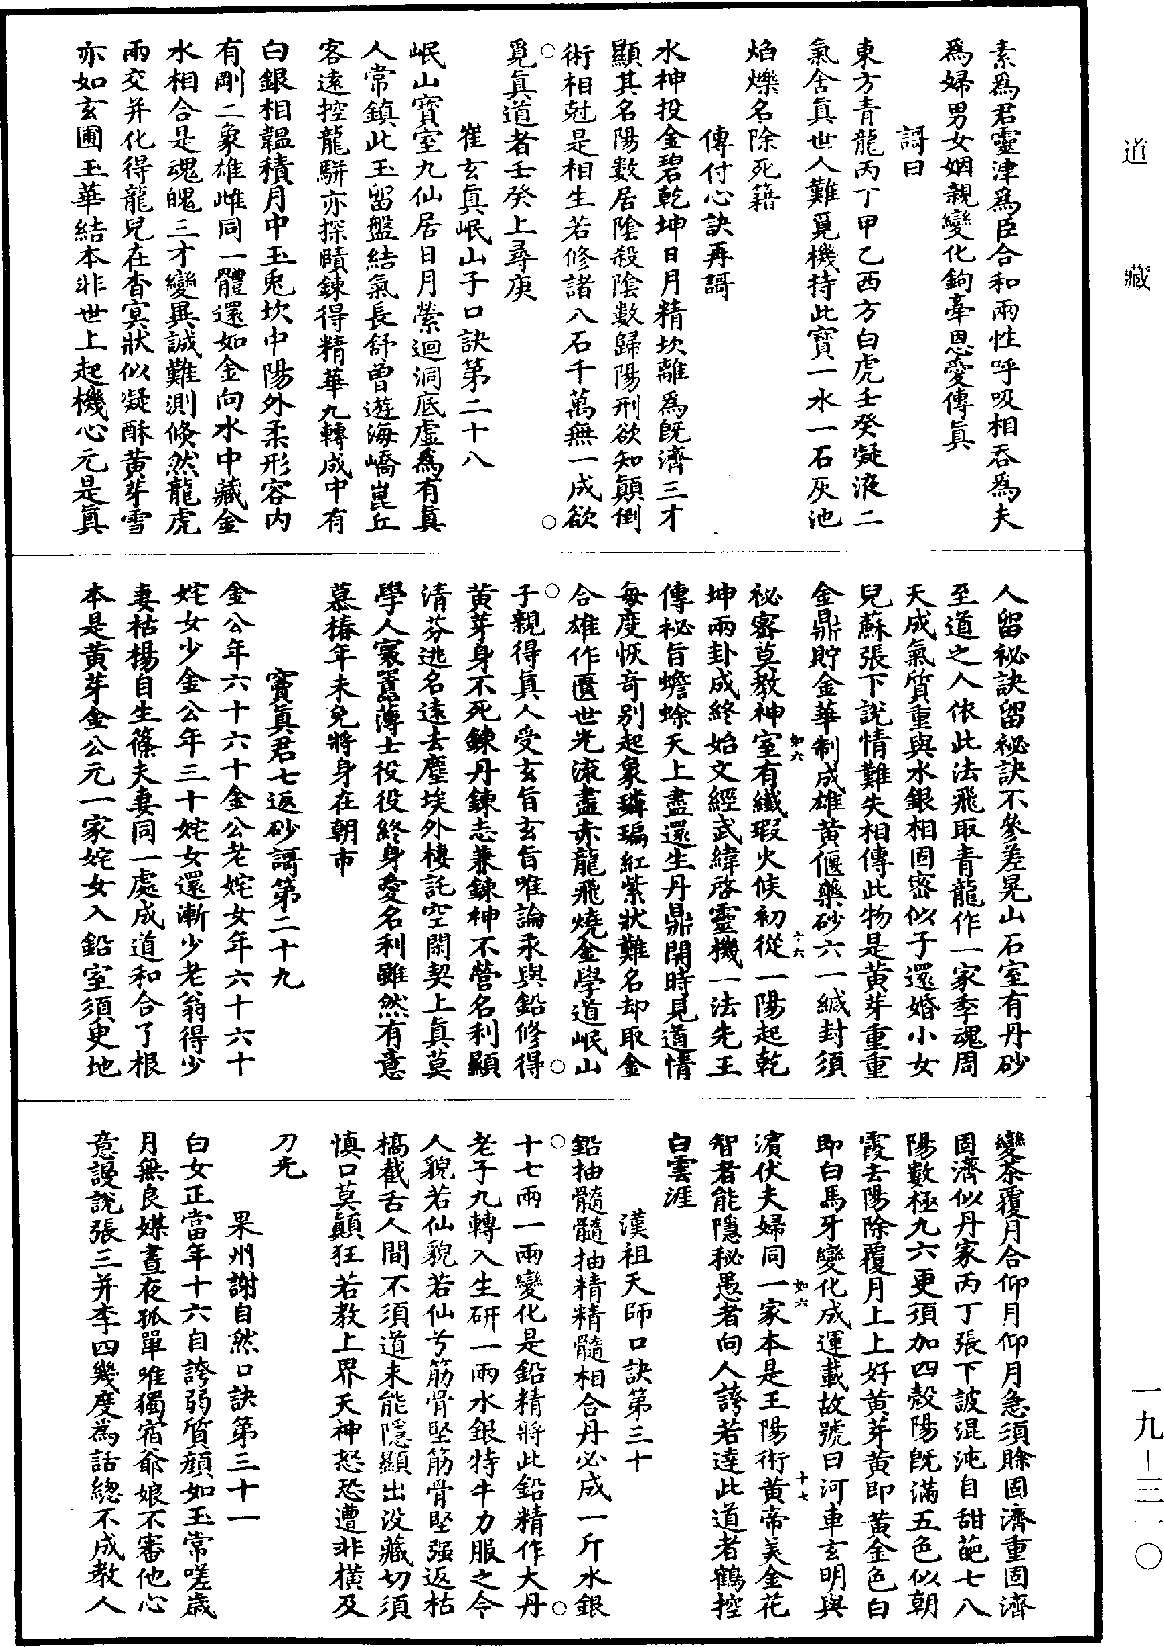 道藏
素爲君靈津爲臣合和兩性呼吸相吞爲夫
爲婦男女姻親變化鉤牽恩愛傳眞
謌曰
東方青龍丙丁甲乙西方白虎壬癸凝液二
氣舍眞世人難覓機持此寶一水一石灰池
焰爍名除死籍
傳付心訣再謌
水神投金碧乾坤日月精坎離爲旣濟三才
顯其名陽數居陰殺陰數歸陽刑欲知顛倒
術相尅是相生若修諸八石千萬無一成欲
覓眞道者壬癸上尋庚
崔玄眞岷山子口訣第二十八
岷山寶室九仙居日月縈迴洞底虛爲有眞
人常鎮此玉留盤結氣長舒曾遊海嶠崑丘
客遠控龍駢亦探賾鍊得精華九轉成中有
白銀相韞積月中玉兎坎中陽外柔形容內
有剛二象雄雌同一體還如金向水中藏金
水相合是魂魄三才變異誠難測倏然龍虎
兩交并化得龍兒在杳冥狀似凝酥黃芽雪
亦如玄圃玉華結本非世上起機心元是眞
人留祕訣留祕訣不參差晃山石室有丹砂
至道之人依此法飛取青龍作一家季魂周
天成氣質重與水銀相固密似子還婚小女
兒蘇張下說情難失相傳此物是黃芽重重
金鼎貯金華制成雄黃偃藥砂六一緘封須
祕密莫教神室有纖瑕火候初從一陽起乾
坤兩卦成終始文經武緯啓靈機一法先王
傳祕旨蟾蜍天上盡還生丹鼎開時見道情
每度恢奇別起象璘㻞紅紫狀難名却取金
合雄作匱世光流盡赤龍飛燒金學道岷山
子親得眞人受玄旨玄旨唯論汞與鉛修得
黃芽身不死鍊丹鍊志兼鍊神不營名利顯
清芬逃名遠去塵埃外棲託空閑契上眞莫
學人寰囂薄士役役終身愛名利雖然有意
慕椿年未免將身在朝市
竇眞君七返砂謌第二十九
金公年六十六十金公老姹女年六十六十
姹女少金公年三十姹女還漸少老翁得少
妻枯楊自生蓧夫妻同一處成道和合了根
本是黃芽金公元一家姹女入鉛室須更地
變茶覆月合仰月仰月急須賖固濟重固濟
固濟似丹家丙丁張下詖混沌自甜葩七八
陽數極九六更須加四殼陽旣滿五色似朝
霞去陽除覆月上上好黃芽黃即黃金色白
即白馬牙變化成運載故號曰河車玄明與
濱伏夫婦同一家本是王陽術黃帝美金花
智者能隱秘愚者向人誇若達此道者鶴控
白雲涯
漢祖天師口訣第三十
鉛抽髓髓抽精精髓相合丹必成一斤水銀
十七兩一兩變化是鉛精將此鉛精作大丹
老子九轉入生研一兩水銀特牛力服之令
人貌若仙貌若仙兮筋骨堅筋骨堅強返枯
槁截舌人間不須道未能隱顯出没藏切須
慎口莫顛狂若教上界天神怒恐遭非橫及
刀光
果州謝自然口訣第三十一
白女正當年十六自誇弱質顔如玉常嗟歲
月無良媒晝夜孤單唯獨宿爺娘不審他心
意謾說張三并李四幾度爲話總不成教人
一九－三一〇